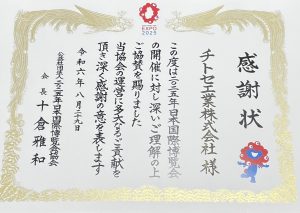 EXPO
2025
感謝状
チトセ工業株式会社 様
この度は二〇二五年日本国際博覧会
の開催に対し深いご理解の上
ご協賛を賜りました
当協会の運営に多大なるご貢献を
頂き深く感謝の意を表します
令和六年八月二十九日
公益社団法人二〇二五年日本国際博覧会協会
会長 十倉雅和